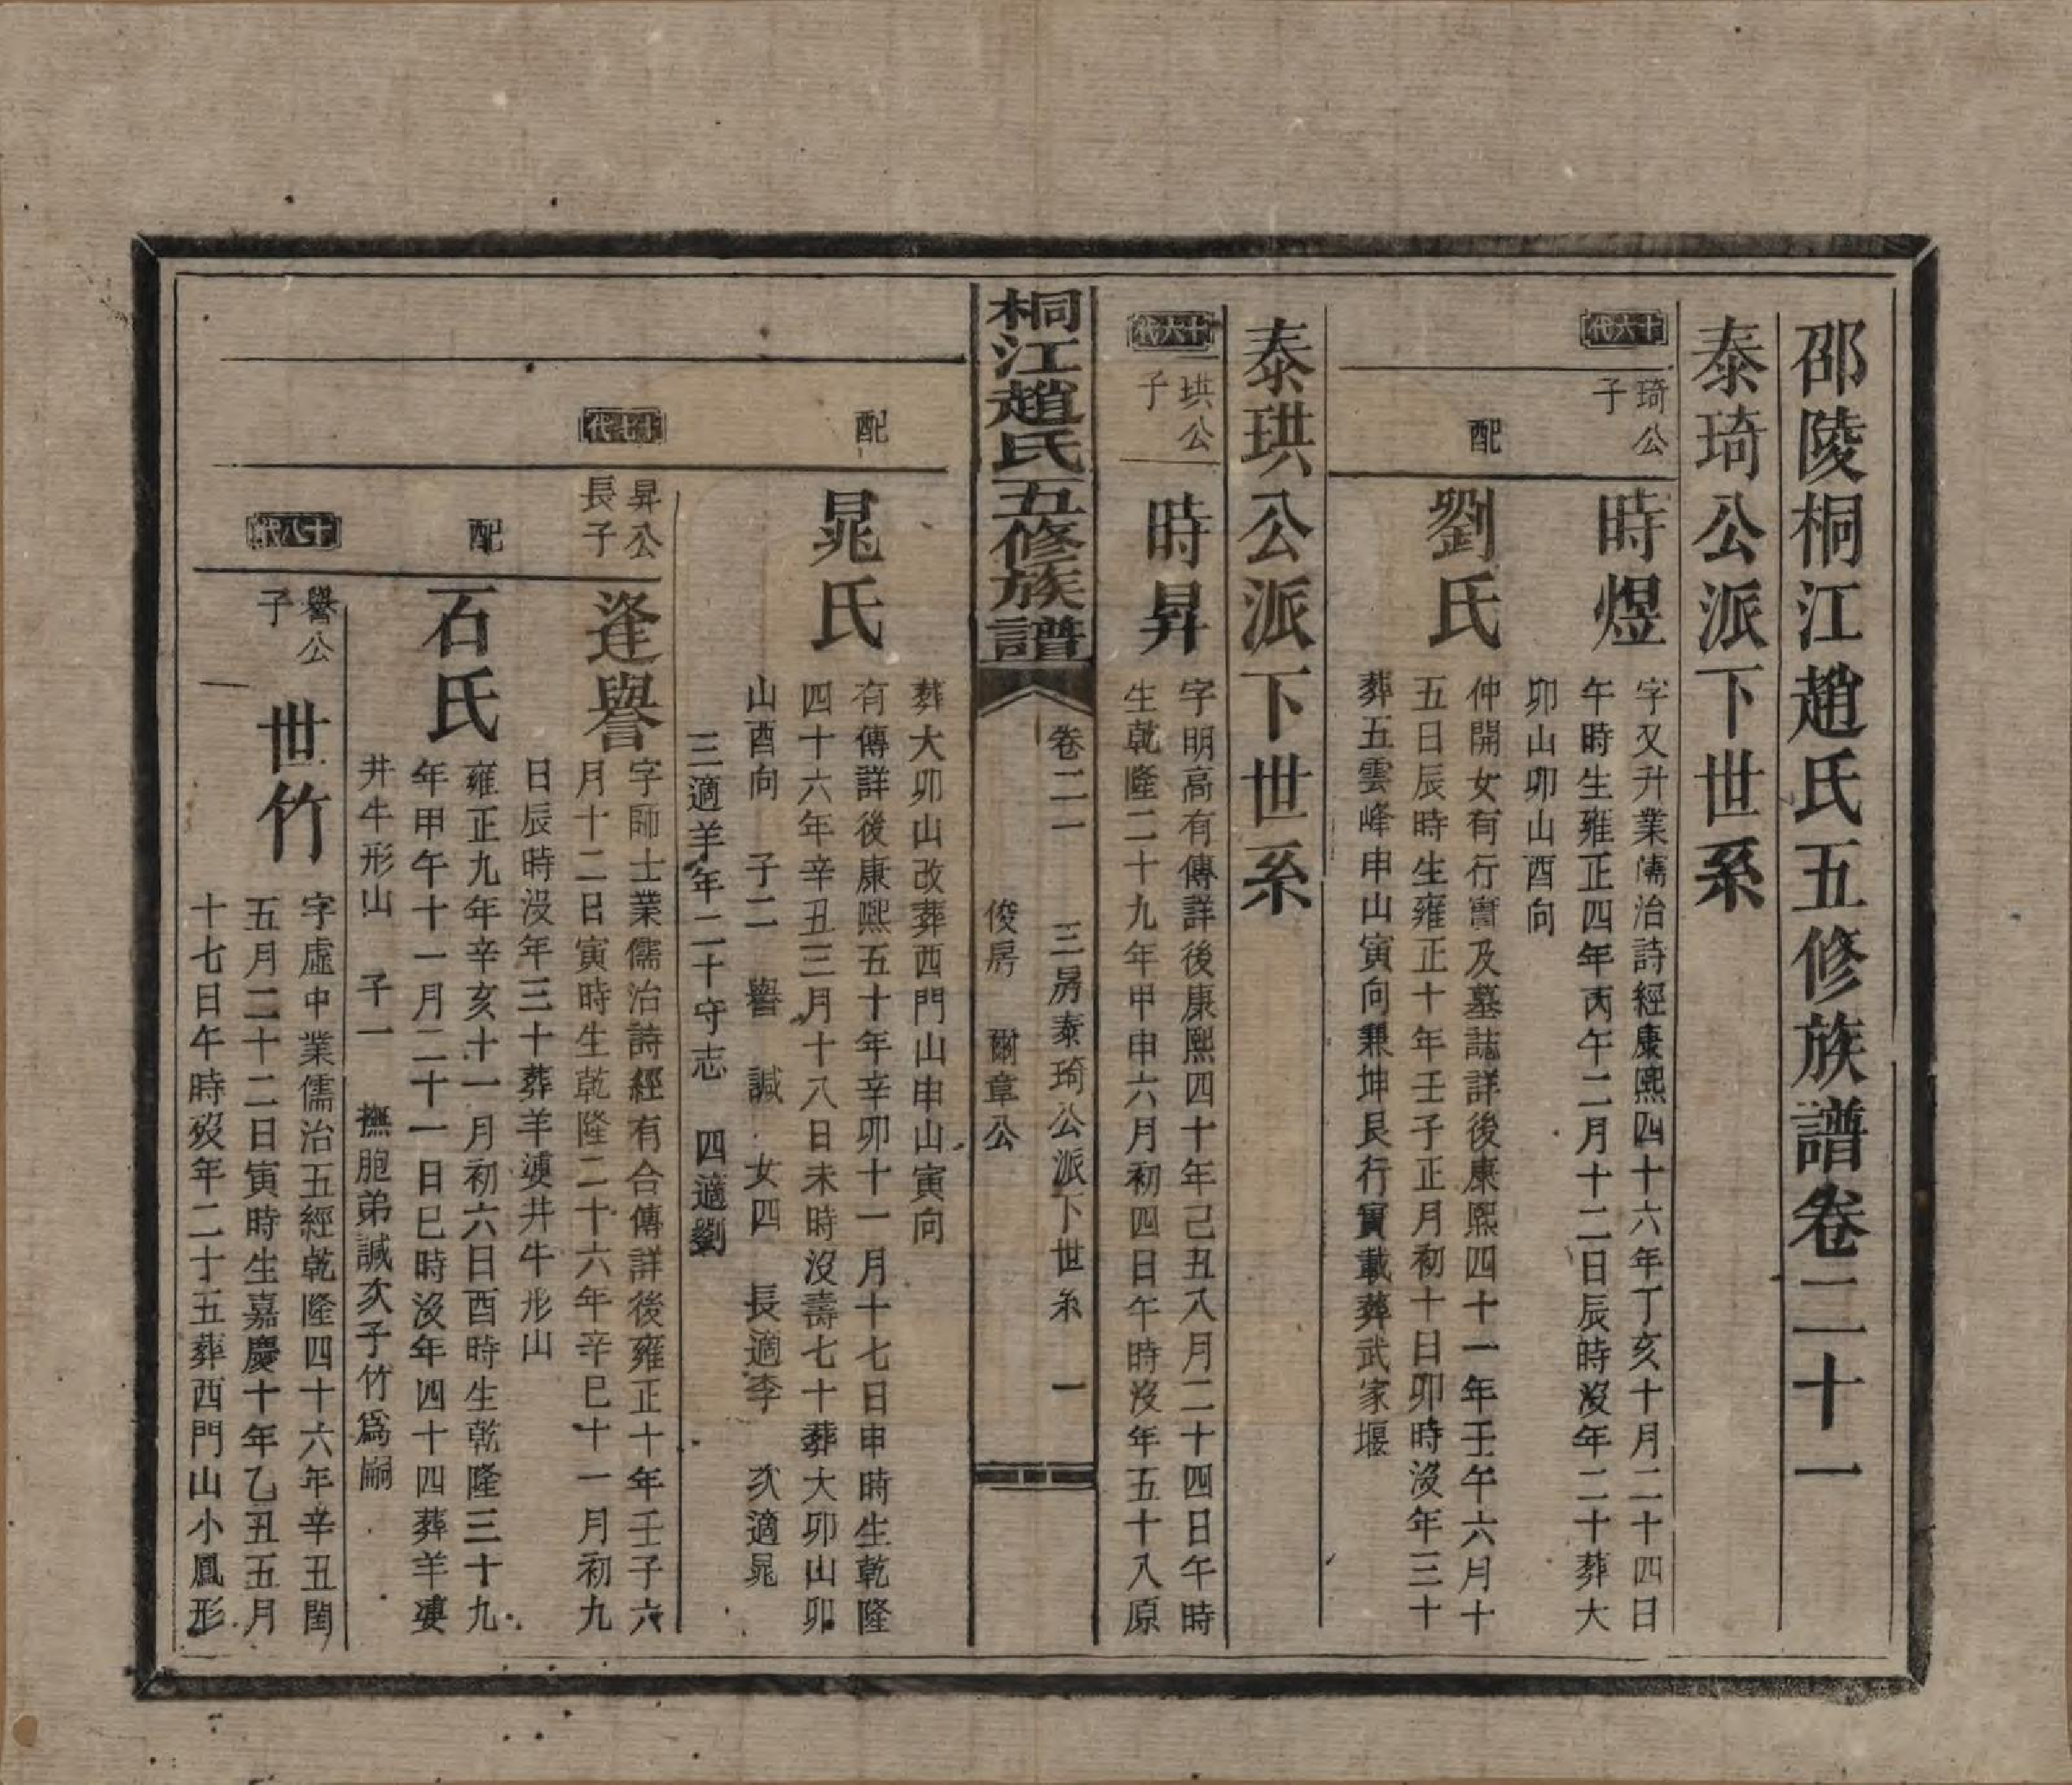 邵陵桐江趙氏五修族譜卷二十一
泰琦公派下世系
十六代
琦公
子
時煜
字又升業儒治詩經康熙四十六年丁亥十月二十四日
午時生雍正四年丙午二月十二日辰時沒年二十葬大
卯山卯山酉向
配
劉氏
仲開女有行實及墓誌詳後康熙四十一年壬午六月十
五日辰時生雍正十年壬子正月初十日卯時沒年三十
葬五雲峰申山寅向兼坤艮行實載葬武家堰
泰珙公派下世系
十六代
珙公
子
時昇
字明高有傳詳後康熙四十年己丑八月二十四日午時
生乾隆二十九年甲申六月初四日午時沒年五十八原
桐江趙氏五修族譜
卷二一 三房泰琦公派下世系 一
俊房 爾章公
葬大卯山改葬西門山申山寅向
配
晁氏
有傳詳後康熙五十年辛卯十一月十七日申時生乾隆
四十六年辛丑三月十八日未時沒壽七十葬大卯山卯
山酉向 子二 譽 諴 女四 長適李 次適晁
三適羊年二十守志 四適劉
十七代
昇公
長子
逢譽
字師士業儒治詩經有合傳詳後雍正十年壬子六
月十二日寅時生乾隆二十六年辛巳十一月初九
日辰時沒年三十葬羊塽井牛形山
配
石氏
雍正九年辛亥十一月初六日酉時生乾隆三十九
年甲午十一月二十一日巳時沒年四十四葬羊塽
井牛形山 子一 撫胞弟諴次子竹爲嗣
十八代
譽公
子
世竹
字虛中業儒治五經乾隆四十六年辛丑閏
五月二十二日寅時生嘉慶十年乙丑五月
十七日午時歿年二十五葬西門山小鳳形